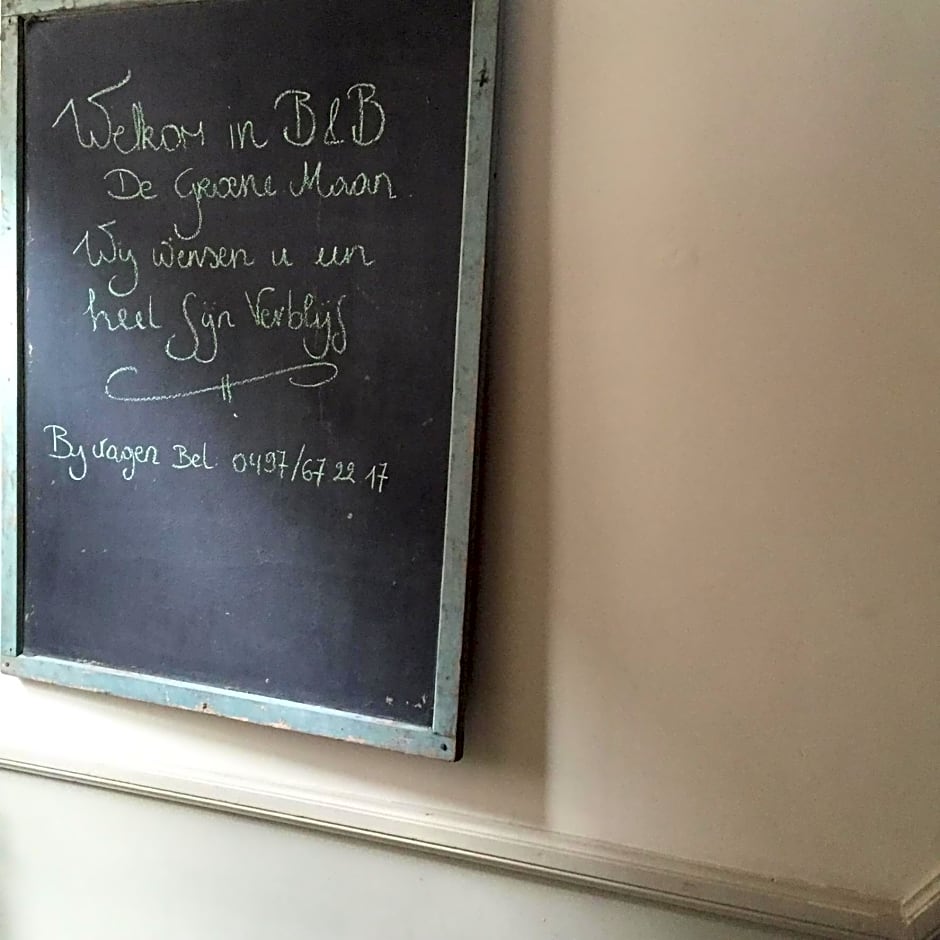 Welkom in B&B
De Groene Maan
Wij wensen u een
heel fijn Verblijf
Bij vragen Bel: 0497/67 22 17